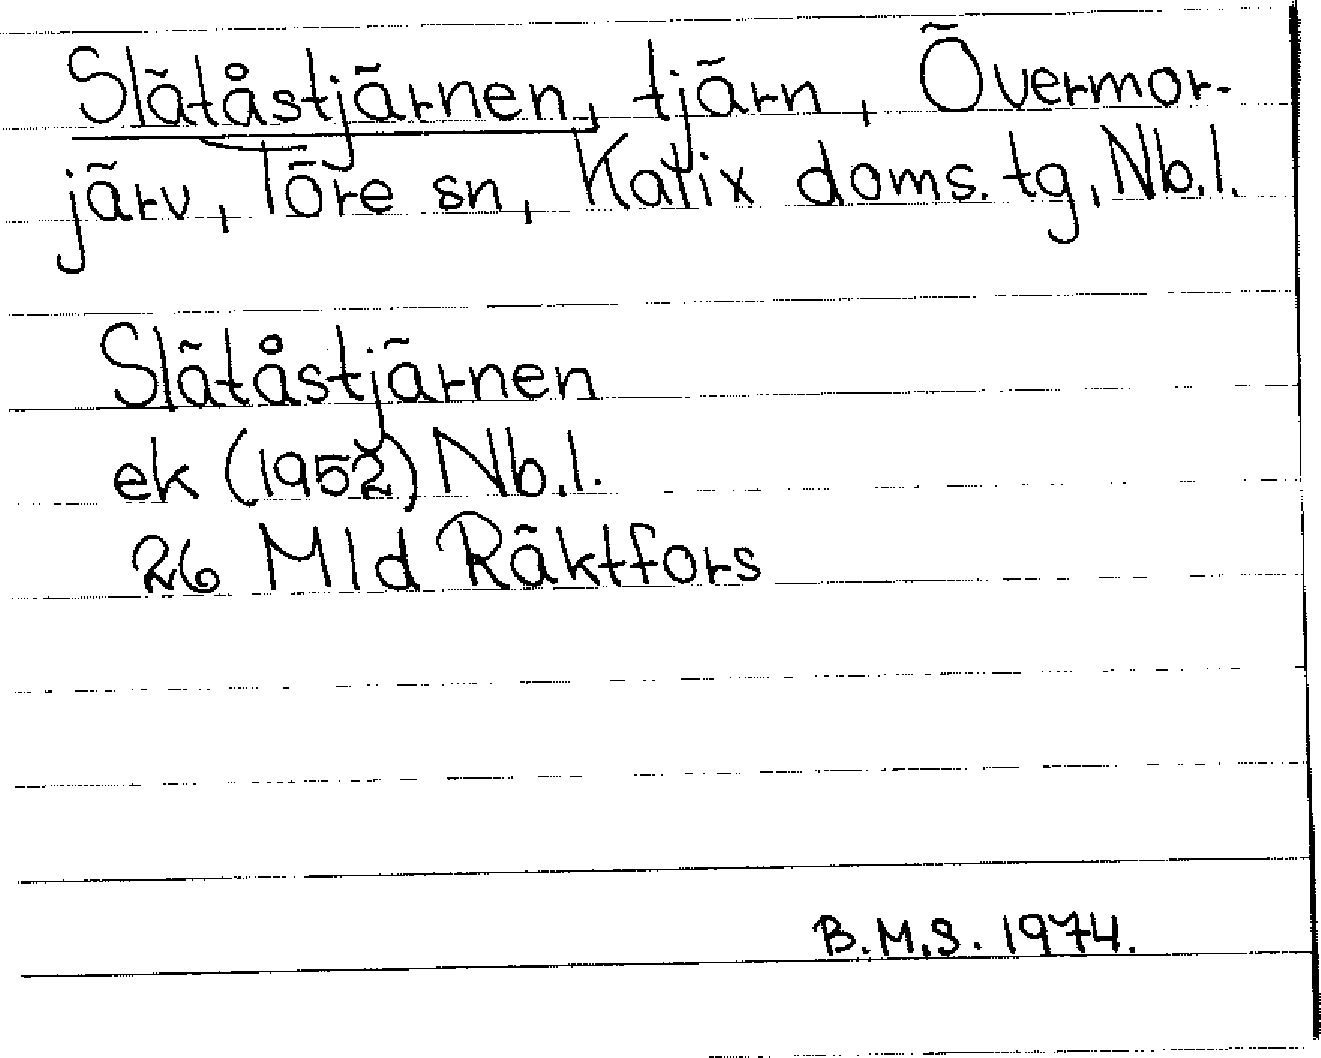 Slätåstjärnen, tjärn, Övermor-
järv, Töre sn, Kalix doms.tg, Nb.l.
Slätåstjärnen
ek (1952) Nb.l.
26 Mld Räktfors
B.M.S. 1974.